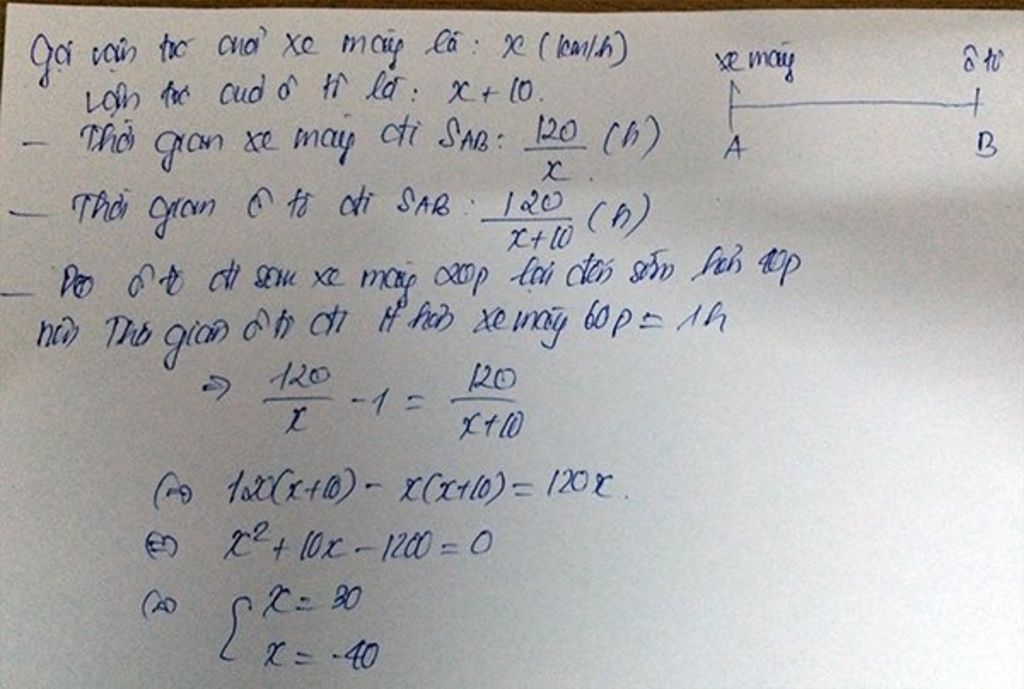 Gọi vận tốc của xe máy là: x (km/h)
vận tốc của ô tô là: x + 10.
xe máy ô tô
A B
- Thời gian xe máy đi SAB: 120/x (h)
- Thời gian ô tô đi SAB: 120/(x+10) (h)
- Do ô tô đi sau xe máy 20p lại đến sớm hơn 40p
nên Thời gian ô tô đi ít hơn xe máy 60p = 1h
⇒ 120/x - 1 = 120/(x+10)
⇔ 120(x+10) - x(x+10) = 120x.
⇔ x² + 10x - 1200 = 0
⇔ { x = 30
x = -40